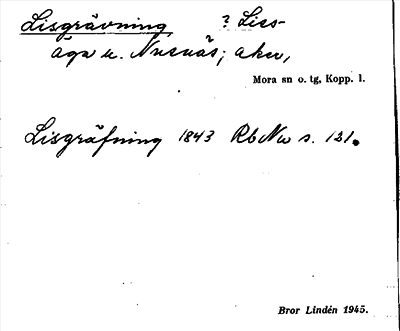 Lisgrävning ? Liss-
äga u. Nusnäs; åker,
Mora sn o. tg, Kopp. l.
Lisgräfning 1843 RbNu s. 121.
Bror Lindén 1945.